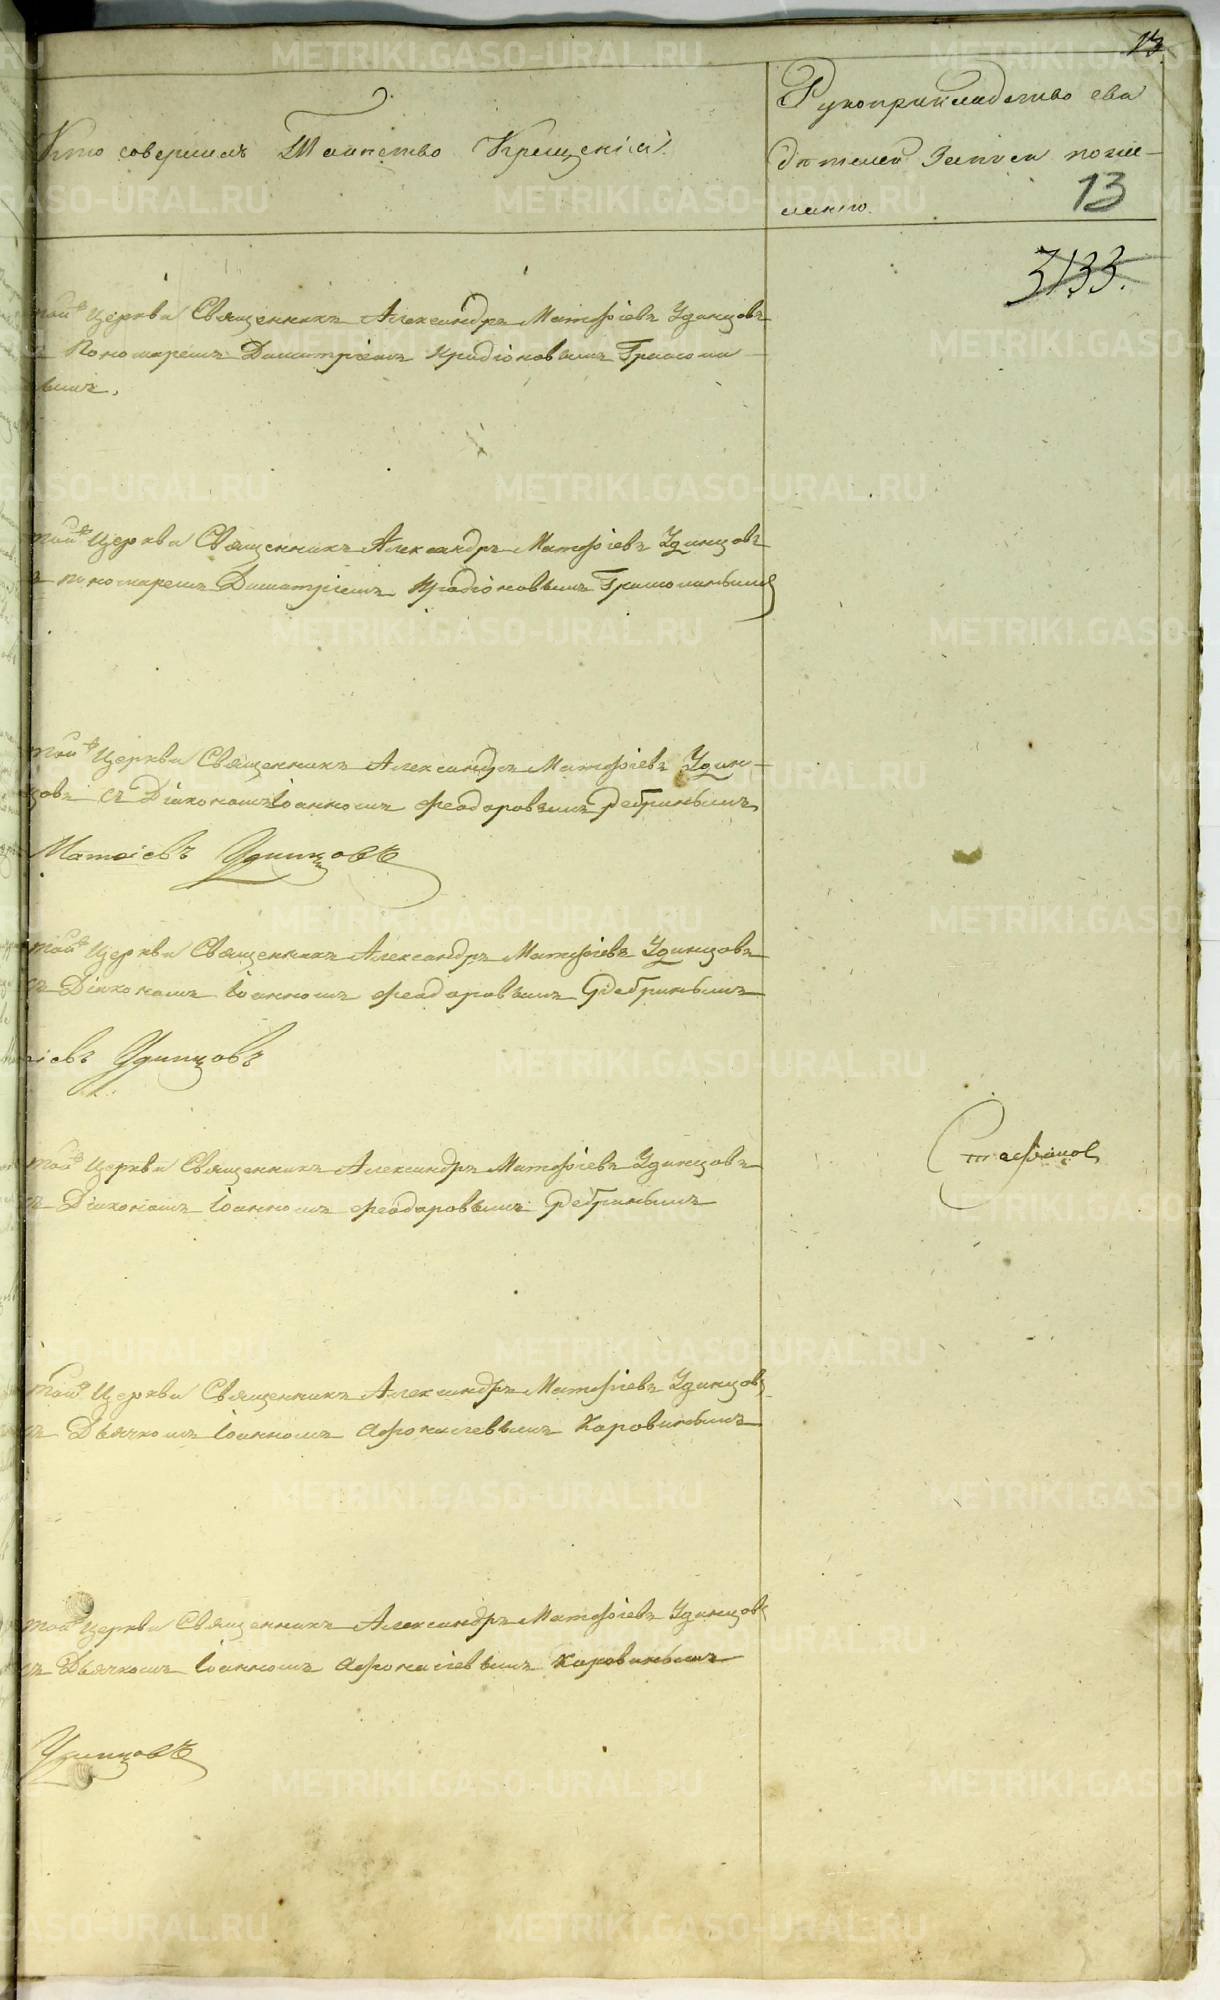 13.
Кто совершалъ Таинство Крещенія.
Рукоприкладство сви
дѣтелей Записи по же-
ланію.
13
3133.
той Церкви Священникъ Александръ Матѳіевъ Удинцовъ
съ Пономаремъ Димитріемъ Иродіоновымъ
вымъ.
той Церкви Священникъ Александръ Матѳіевъ Удинцовъ
съ пономаремъ Димитріемъ Иродіоновымъ
той Церкви Священникъ Александръ Матѳіевъ Удин-
цовъ съ Діакономъ Іоанномъ Феодоровымъ
Матѳіевъ Удинцовъ
той Церкви Священникъ Александръ Матѳіевъ Удинцовъ
съ Діакономъ Іоанномъ Феодоровымъ
іевъ Удинцовъ
той Церкви Священникъ Александръ Матѳіевъ Удинцовъ
съ Діакономъ Іоанномъ Феодоровымъ
Стефанов
той Церкви Священникъ Александръ Матѳіевъ Удинцовъ
съ Дьячкомъ Іоанномъ Афонасіевымъ Коровинымъ
той Церкви Священникъ Александръ Матѳіевъ Удинцовъ
съ Дьячкомъ Іоанномъ Афонасіевымъ Коровинымъ
Удинцовъ
METRIKI.GASO-URAL.RU